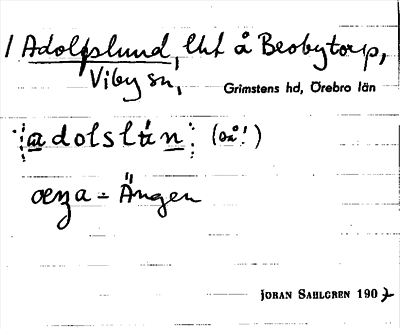 1 Adolfslund, lht å Beobytorp,
Viby sn,
Grimstens hd, Örebro län
adolslún (på!)
Ängen
JORAN SAHLGREN 1907